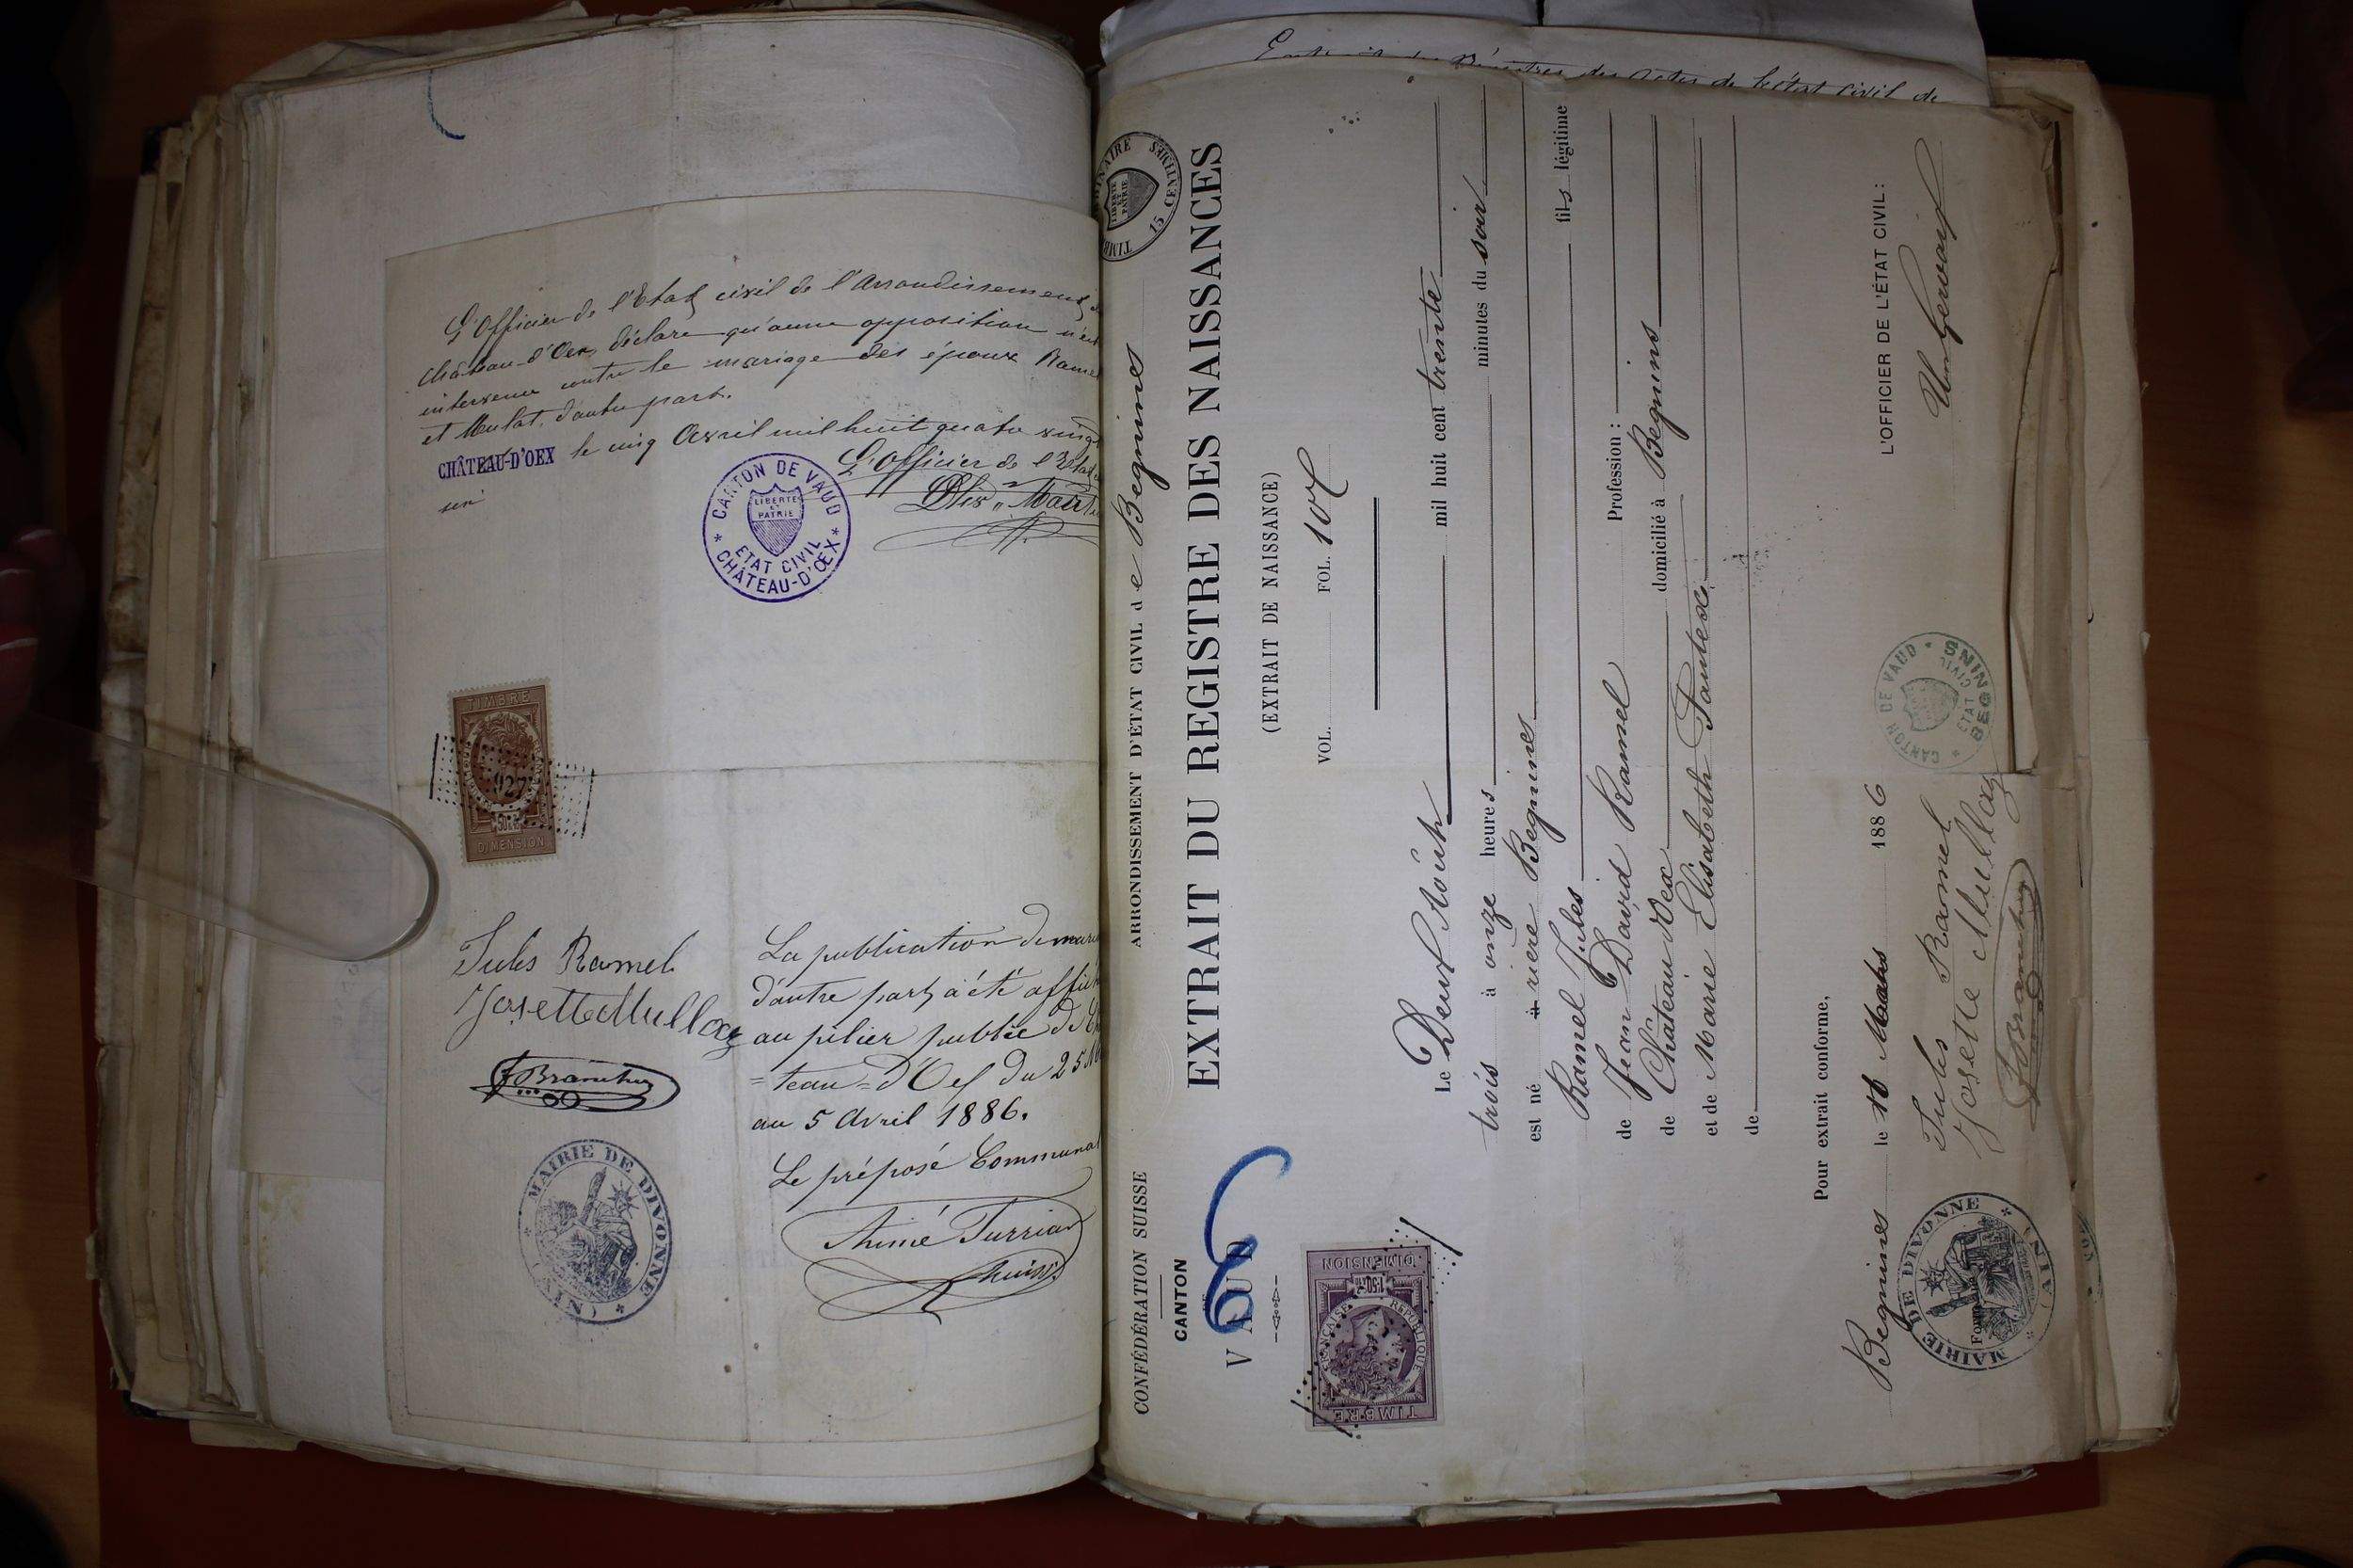 L'Officier de l'Etat civil de l'Arrondissement
Château-d'Oex, déclare qu'aucune opposition n'est
intervenue contre le mariage des époux Ramel
et Mulat, d'autre part.
CHÂTEAU-D'OEX le cinq Avril mil huit quatre vingt
six
L'Officier de l'Etat
CANTON DE VAUD
LIBERTÉ
ET
PATRIE
ETAT CIVIL
CHÂTEAU-D'ŒX
TIMBRE
927
DIMENSION
Jules Ramel
Josette Mullaz
FBranchu
La publication de
d'autre part a été
au pilier public de
teau-d'Oex du 25
au 5 Avril 1886.
Le préposé Communal
Aimé Turrian
MAIRIE DE DIVONNE
(AIN)
15 CENTIMES
LIBERTÉ
ET
PATRIE
CONFÉDÉRATION SUISSE
ARRONDISSEMENT D'ÉTAT CIVIL de Begnins
CANTON
VAUD
EXTRAIT DU REGISTRE DES NAISSANCES
(EXTRAIT DE NAISSANCE)
VOL. FOL.
TIMBRE
RÉPUBLIQUE FRANÇAISE
DIMENSION
Le Deux Août mil huit cent trente
trois à onze heures minutes du soir
est né à rière Begnins
Ramel Jules fils légitime
de Jean David Ramel Profession :
de Château d'Oex domicilié à Begnins
et de Marie Elisabeth Pantex
de
Pour extrait conforme,
Begnins le 18 Mars 1886
L'OFFICIER DE L'ÉTAT CIVIL :
CANTON DE VAUD
ETAT CIVIL
BEGNINS
Jules Ramel
Josette Mullaz
FBranchu
MAIRIE DE DIVONNE
(AIN)
des actes de l'état civil de